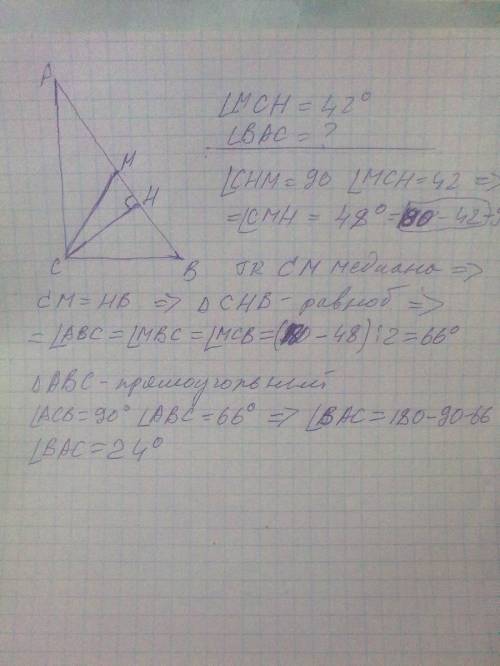 A
M
H
C
B
∠MCH = 42°
∠BAC = ?
∠CHM = 90 ∠MCH = 42 =>
=∠CMH = 48° = 90 - 42
TK CM медиана =>
CM = HB => △CHB - равноб =>
= ∠ABC = ∠MBC = ∠MCB = (180 - 48) : 2 = 66°
△ABC - прямоугольный
∠ACB = 90° ∠ABC = 66° => ∠BAC = 180-90-66
∠BAC = 24°